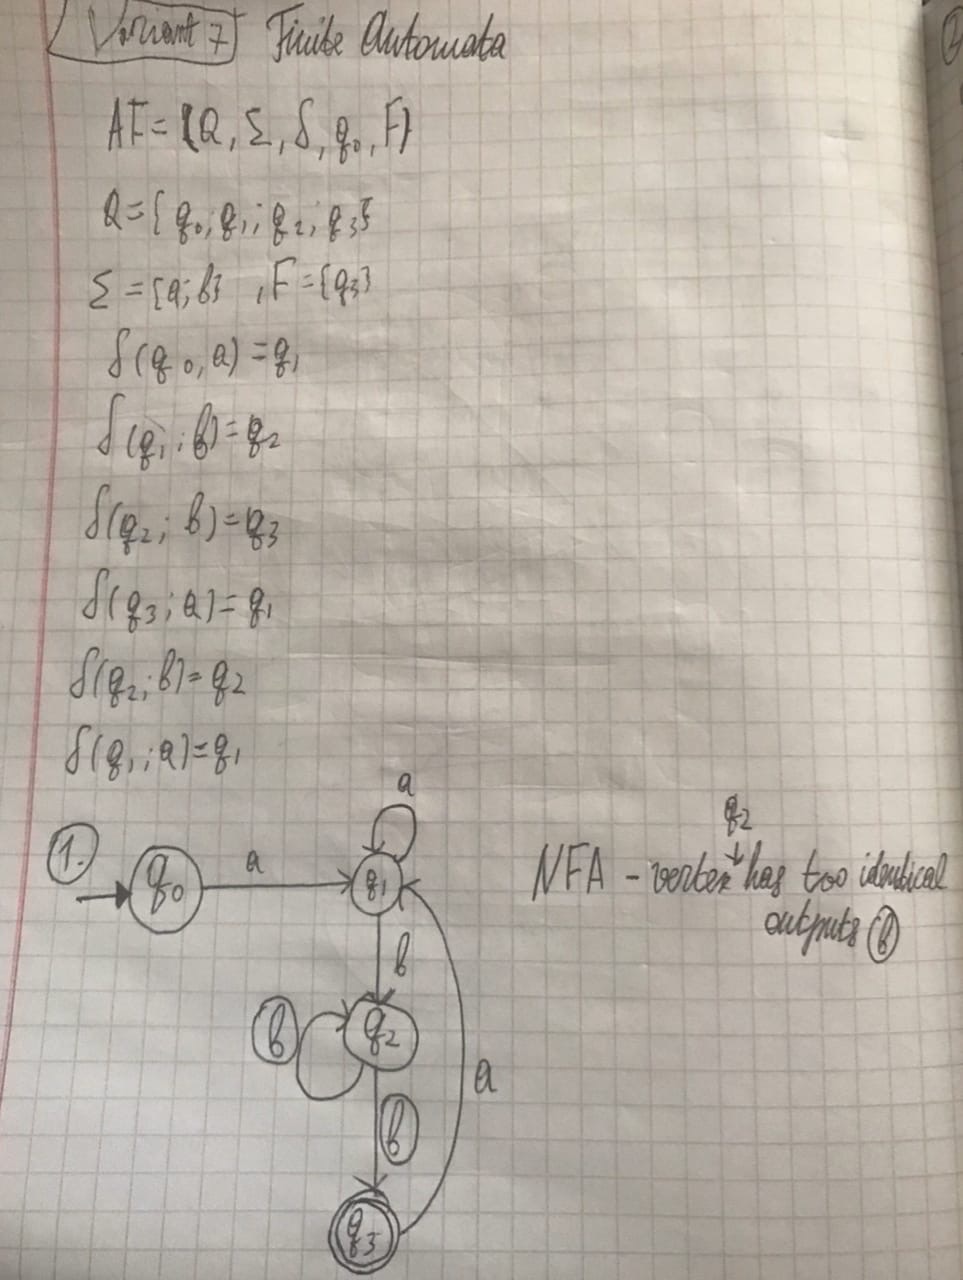 Variant 7 Finite Automata
AF = (Q, Σ, δ, q₀, F)
Q = { q₀; q₁; q₂; q₃}
Σ = {a; b} , F = {q₃}
δ(q₀, a) = q₁
δ(q₁; b) = q₂
δ(q₂; b) = q₃
δ(q₃; a) = q₁
δ(q₂; b) = q₂
δ(q₁; a) = q₁
a
q₂
1. q₀ a q₁ NFA - vertex has too identical
outputs b
b
b q₂
a
b
q₃